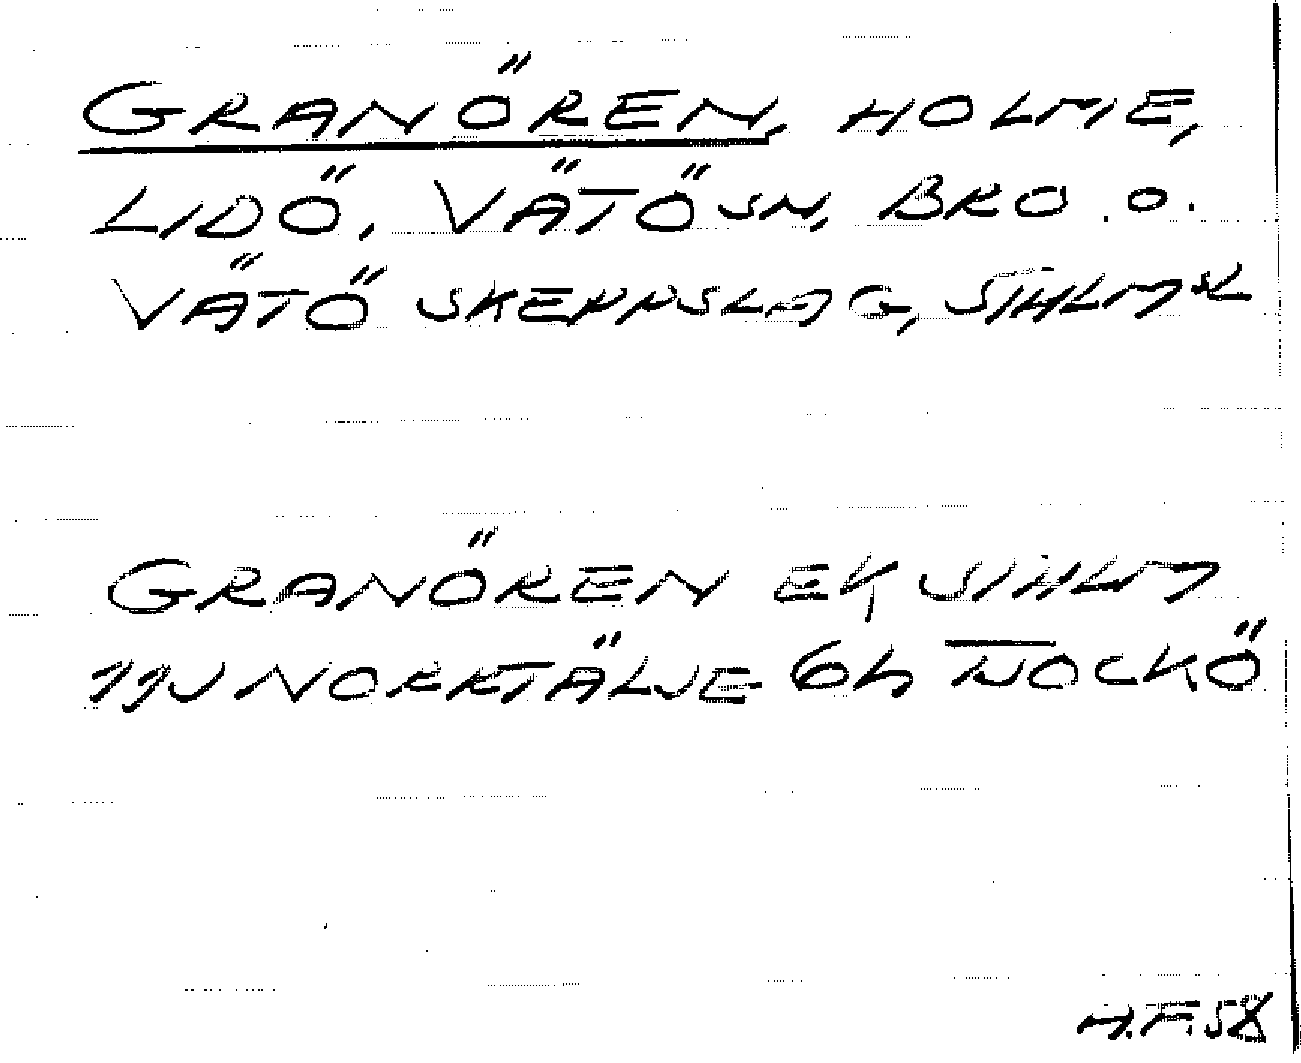 GRANÖREN, HOLME,
LIDÖ, VÄTÖ SN, BRO. O.
VÄTÖ SKEPPSLAG, STHLMS L
GRANÖREN EK STHLM
11J NORRTÄLJE 6h TJOCKÖ
H.F. 58